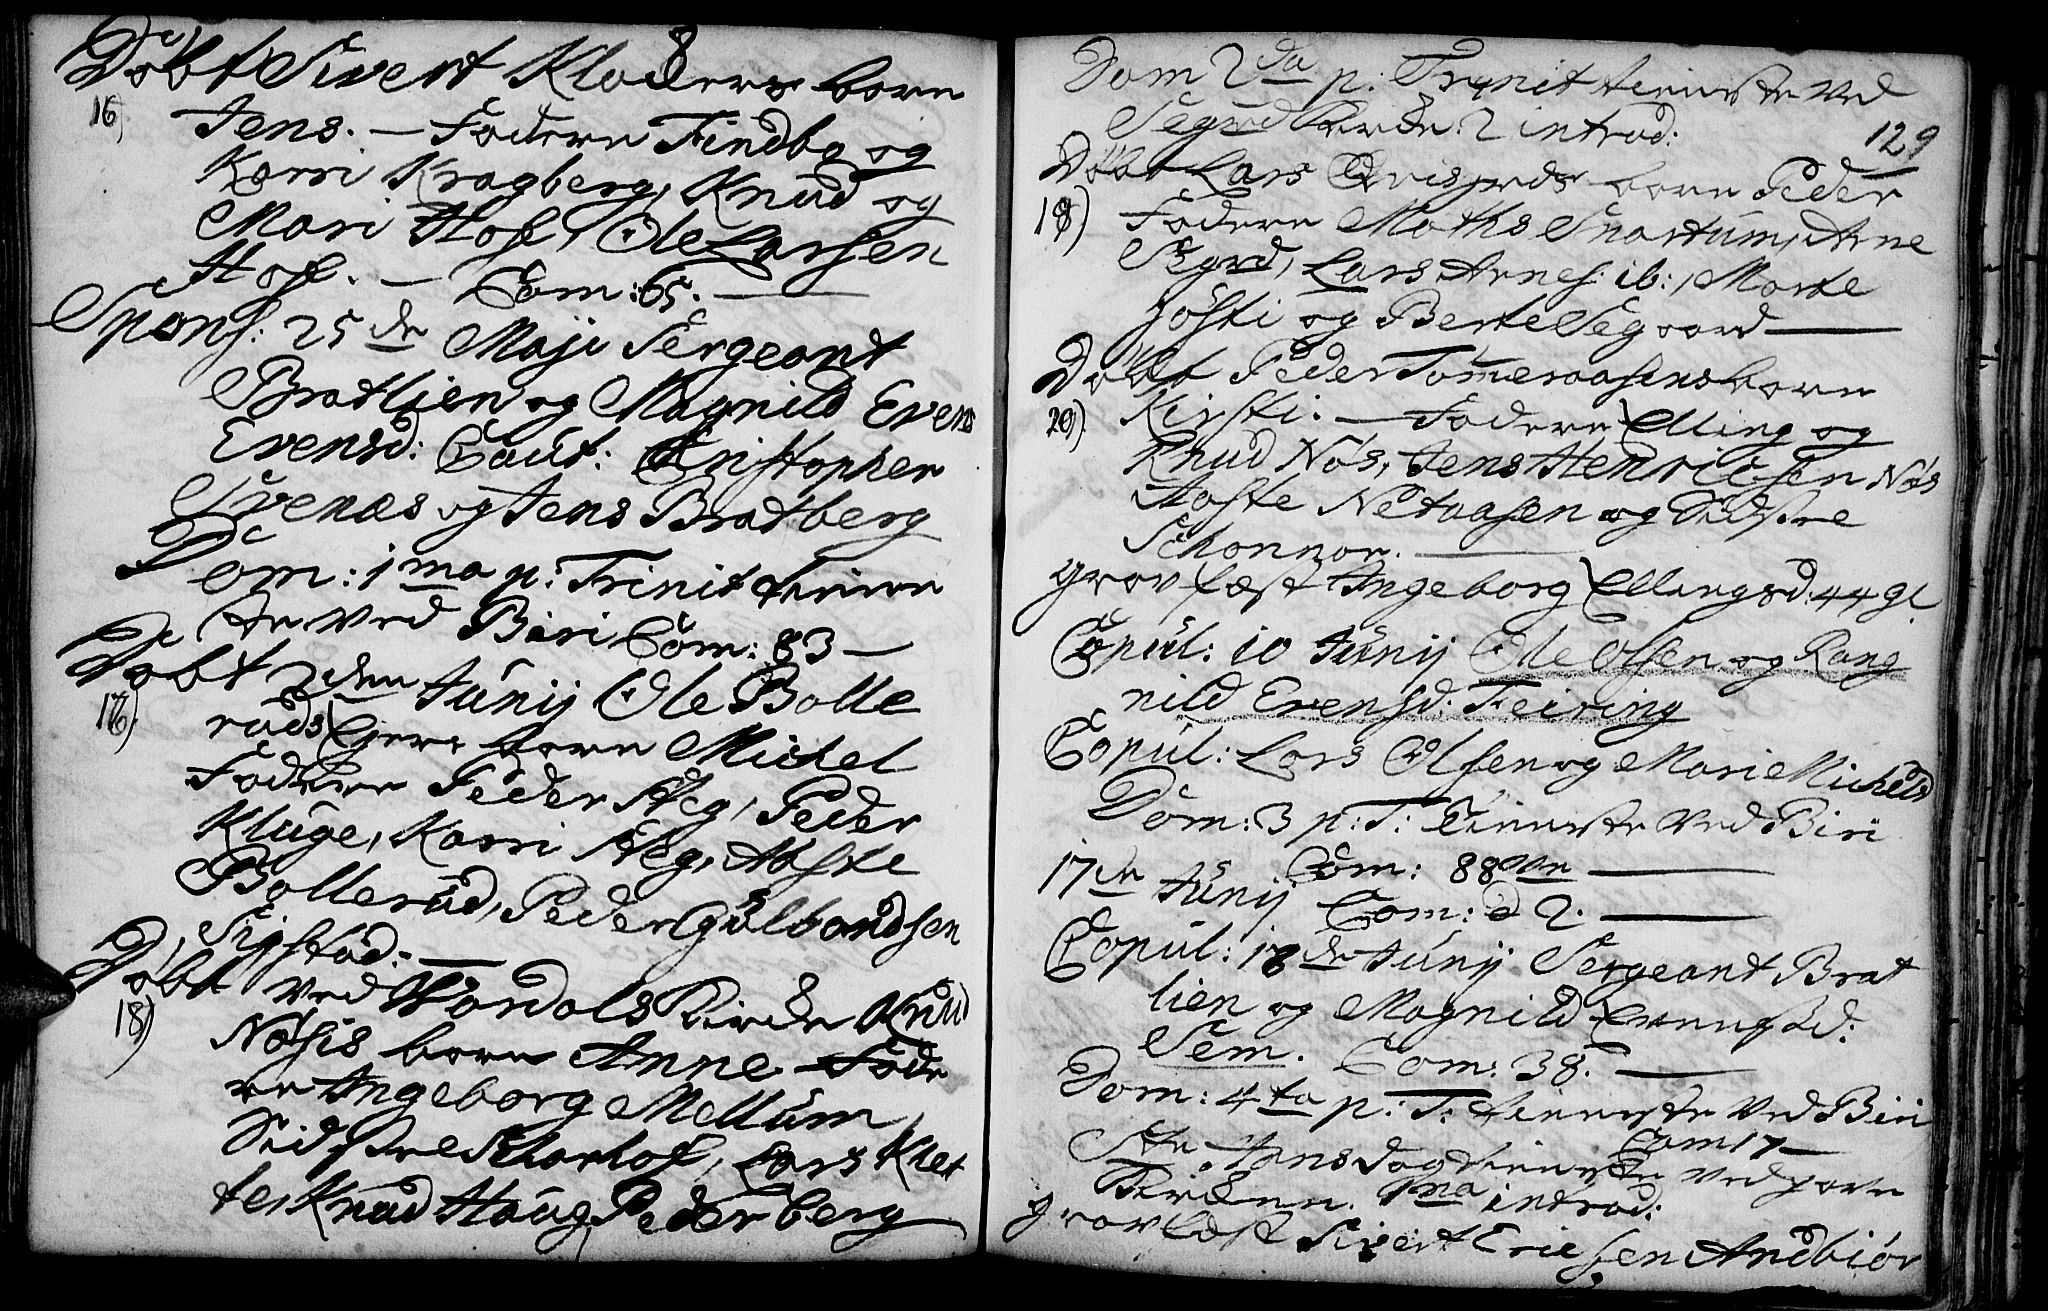 Döbt Sivert Kloders barn
16) Jens. — Fadere Findbo og
Karri Kragberg, Knud og
Mari Hofe, Ole Larsen
Hofe. — Com: 65. —
Spons: 25 de Maji Sergeant
Bratlien og Magnild Evens
Evensd: Caut: Christopher
Svenæs og Jens Bratberg
Dom: 1ma p: Trinit tienne
ste ved Biri Com: 83 —
Döbt 2den Junij Ole Bolle
17) ruds Ejers barn Michel
Fadere Peder Steg, Peder
Kluge, Karri Steg, Aaste
Bollerud, Peder Gulbandsen
Sigstad. —
Döbt ved Wardals Kirche Knud
18) Nösis barn Anne Fade
re Ingeborg Mellum,
Sidsele Skarhof, Lars Klet
te, Knud Haug, Peder Berg
Dom 2da p: Trinit tienneste ved
Segard Kirche: 2 introd:
129
Döbt Lars barn Peder
19) Fadere Maths Snartum, Arne
Segrd, Lars Arnes: ib:, Marte
Hösti og Berte Segaard —
Döbt Peder Tömeraasens barn
20) Kirsti. — Fadere Elling og
Knud Nös, Jens Hendricsen Nös
Aaste Netaasen og Sidsele
Skonnor. —
Gravfæst Ingeborg Ellingsd: 44 gl
Copul: 10 Junij Ole Olsen og Rang
nild Evensd: Feiring
Copul: Lars Olsen og Mari Michelsd
Dom: 3 p: T: Tienneste ved Biri
Com: 88 —
17de Junij Com: 2. —
Copul: 18de Junij Sergeant Brat
lien og Magnild Evensd:
Sem. Com: 38. —
Dom: 4ta p: T: tienneste ved Biri
Com 17 —
Ste Hans dag tienneste ved
Kirchen. 1ma introd:
Gravfæst Sivert Ericsen Andbiör